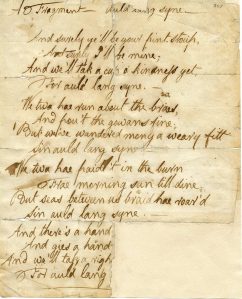 A Fragment Auld lang syne.
And surely ye'll be your pint stoup,
And surely I'll be mine;
And we'll tak a cup o kindness yet
For auld lang syne.
We twa hae run about the braes,
And pou't the gowans fine;
But we've wandered mony a weary fitt
Sin auld lang syne
We twa hae paidl't in the burn
Frae morning sun till dine;
But seas between us braid hae roar'd
Sin auld lang syne.
And there's a hand
And gies a hand
And we'll tak a right
For auld lang